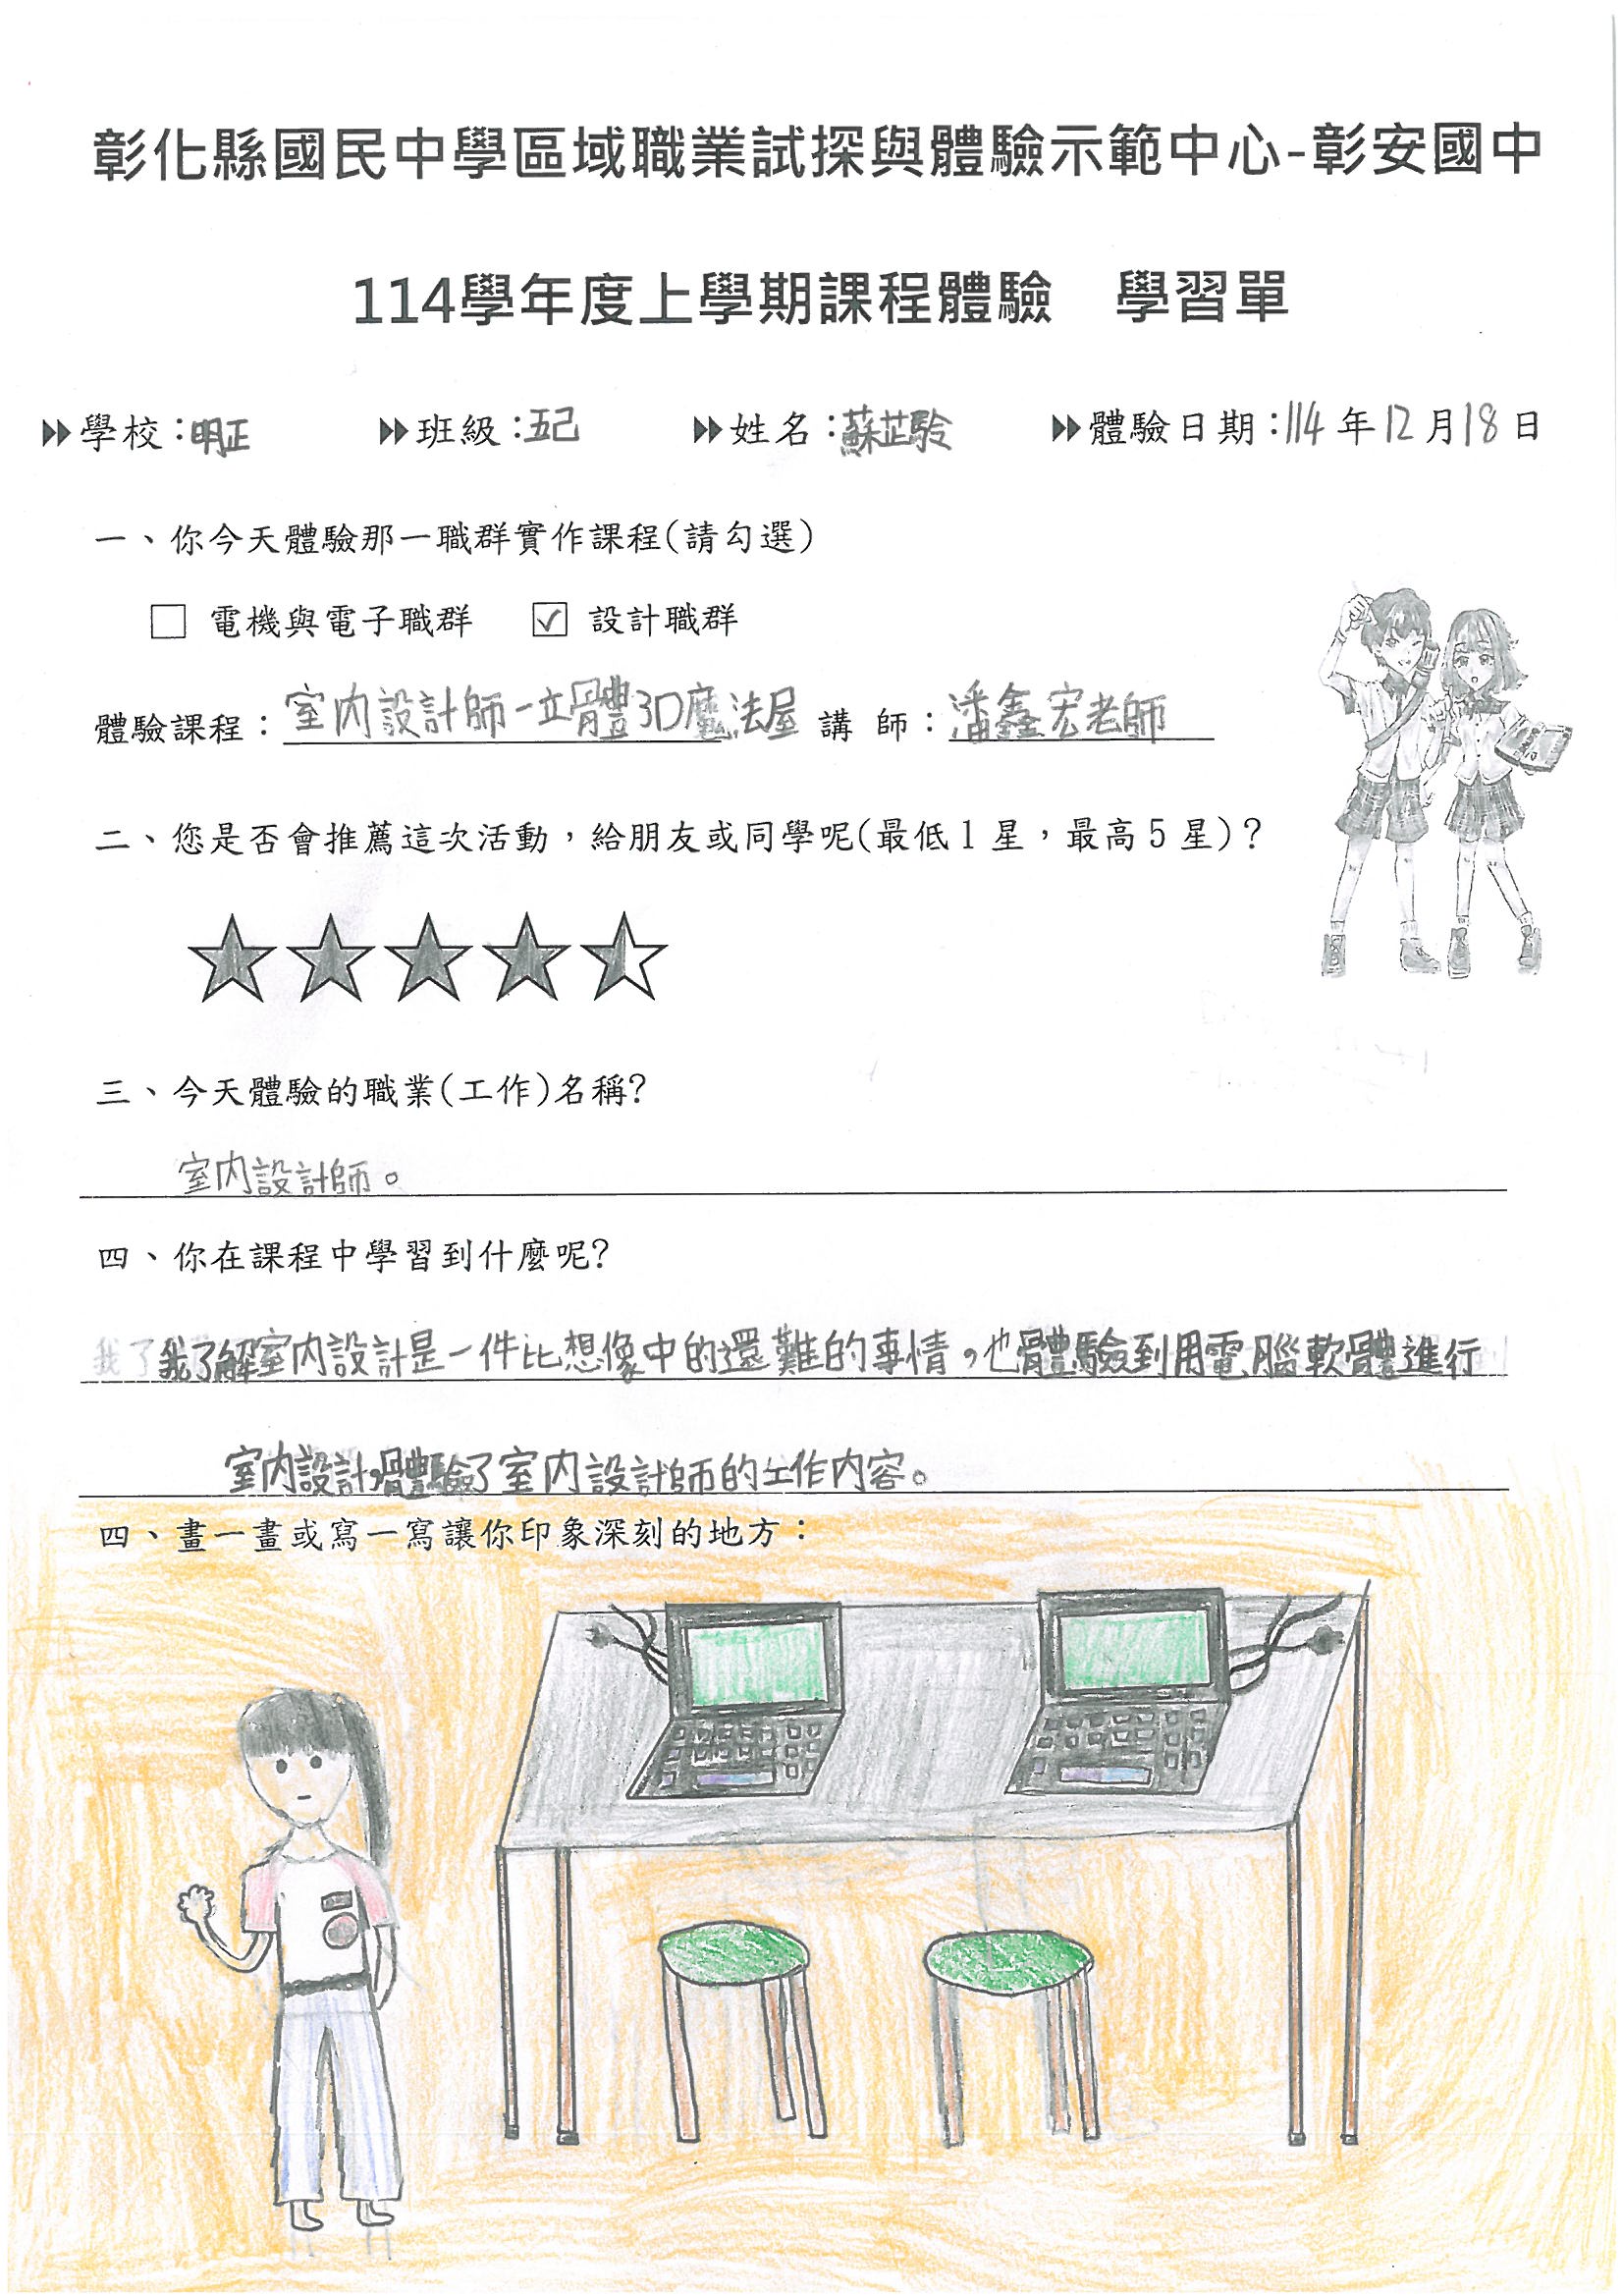 彰化縣國民中學區域職業試探與體驗示範中心-彰安國中
114學年度上學期課程體驗 學習單
學校:明正 班級:五己 姓名:蘇芷聆 體驗日期:114年12月18日
一、你今天體驗那一職群實作課程(請勾選)
□ 電機與電子職群 ☑ 設計職群
體驗課程:室內設計師-立體3D魔法屋 講 師:潘鑫宏老師
二、您是否會推薦這次活動,給朋友或同學呢(最低1星,最高5星)?
三、今天體驗的職業(工作)名稱?
室內設計師。
四、你在課程中學習到什麼呢?
我了解室內設計是一件比想像中的還難的事情,也體驗到用電腦軟體進行
室內設計,體驗了室內設計師的工作內容。
四、畫一畫或寫一寫讓你印象深刻的地方: